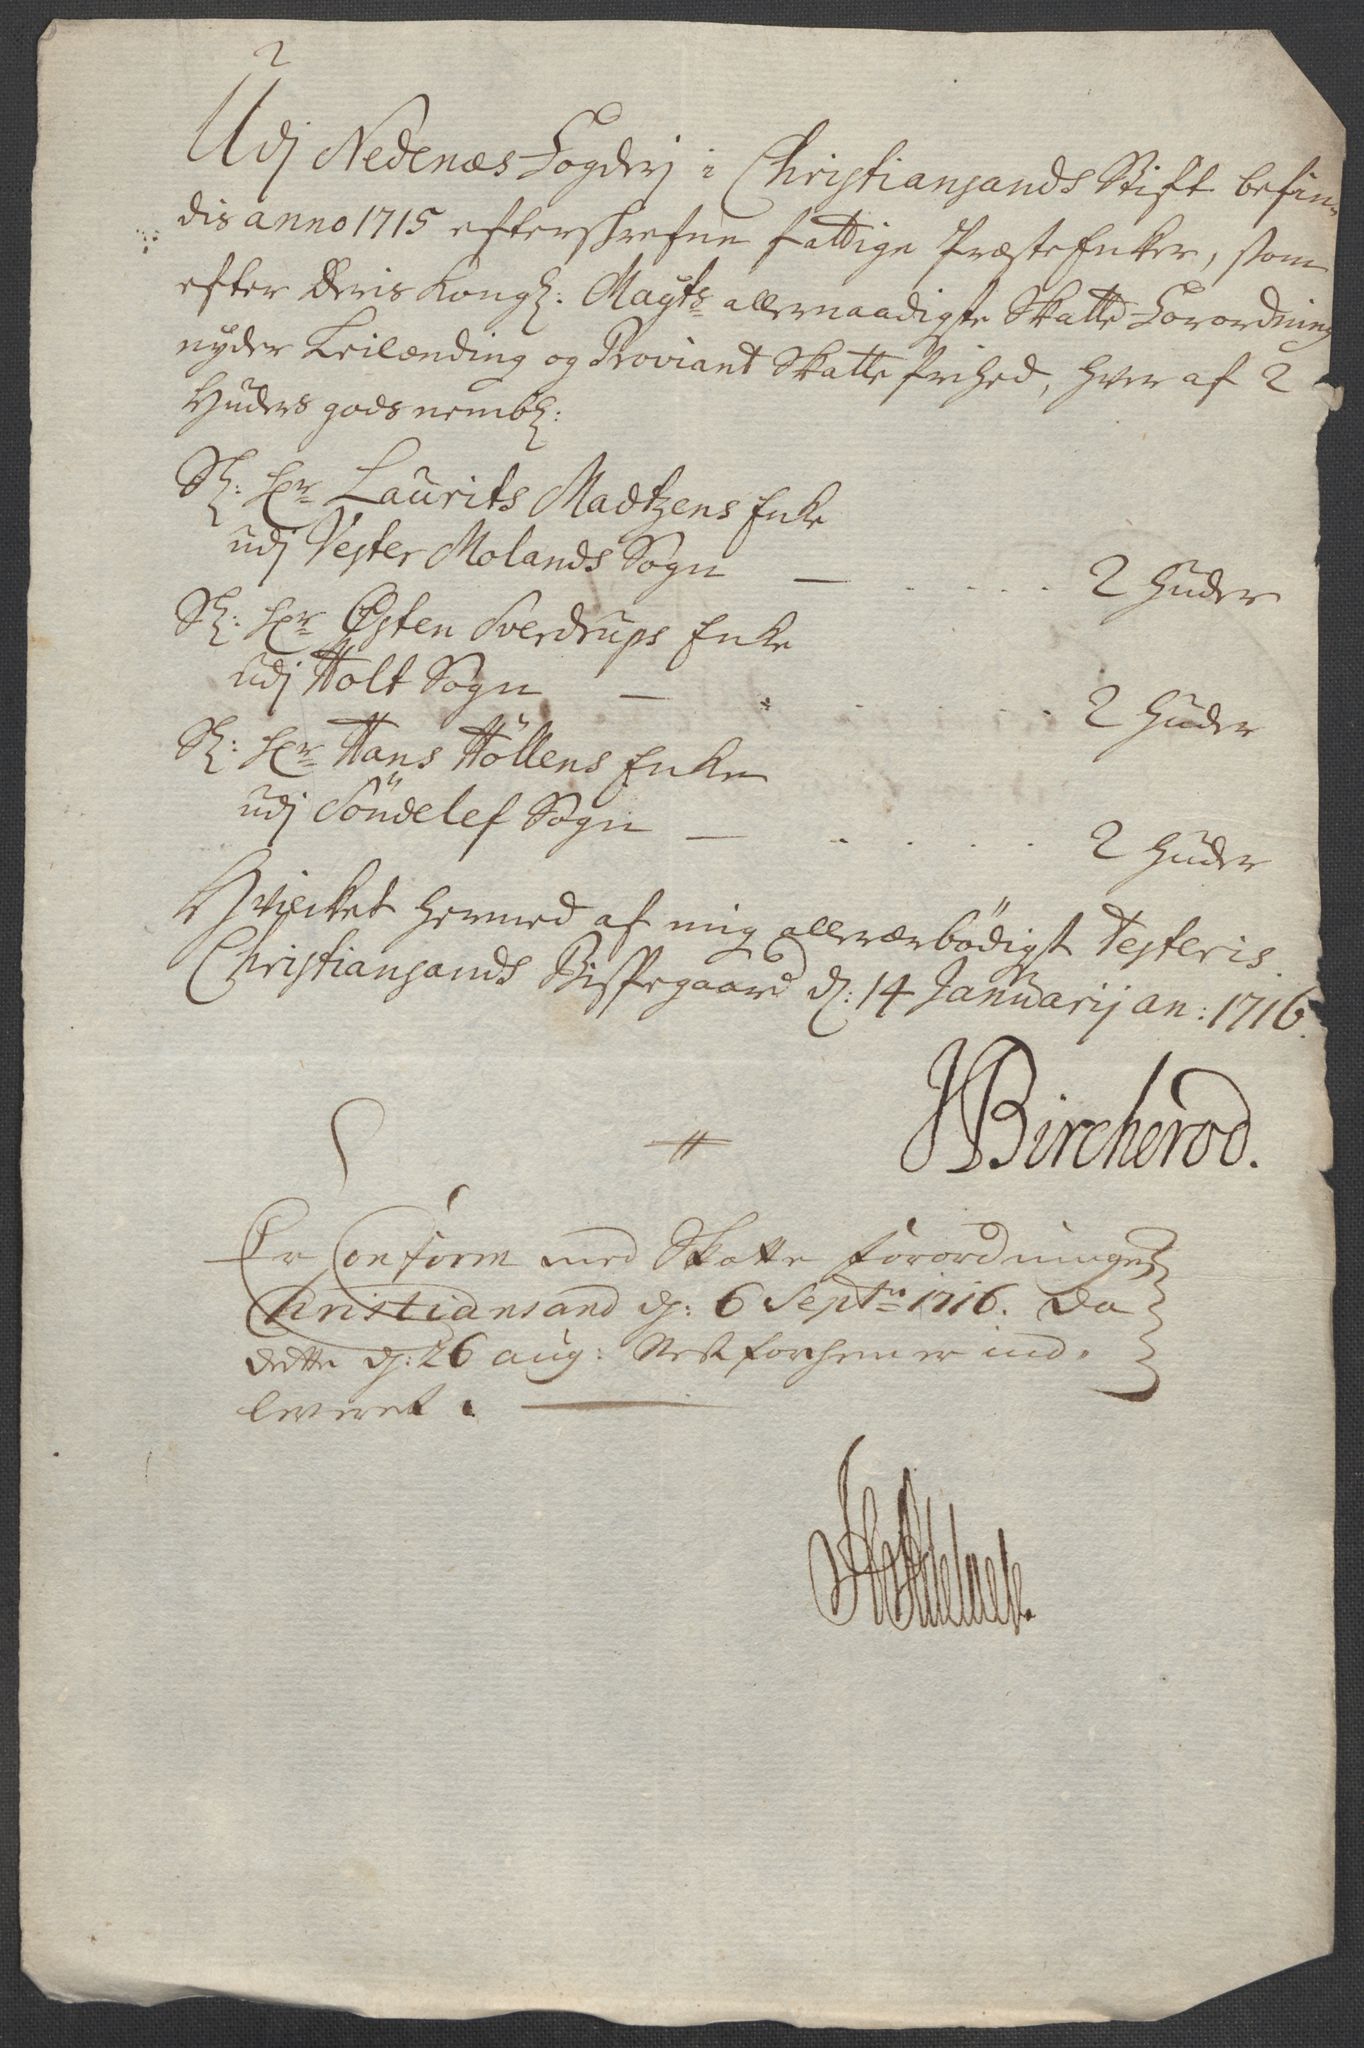 2
Udj Nedenæs Fogderj i Christiansands Stift befin-
dis anno 1715 efterskrefne fattige PræsteEnker, som
efter Deris Kongl: Mayts allernaadigste Skatte-Forordning
nyder Leilænding og Proviant Skatte frihed, hver af 2
Huders gods nembl:
Sl: Hr Laurits Madtzens Enke
udj Vester Molands Sogn — . . . . 2 Huder
Sl: Hr Østen Sverdrups Enke
udj Holt Sogn — . . . . 2 Huder
Sl: Hr Hans Höllens Enke
udj Söndelef Sogn — . . . . 2 Huder
Hvilcket hermed af mig allerærbödigst Testeris.
Christiansands Bispegaard d: 14 Januarij an: 1716.
JBircherod.
Er Conform med Skatte forordningen
Christiansand d: 6 Septr 1716. Da
dette d: 26 aug: Nest forhen er ind-
leveret.